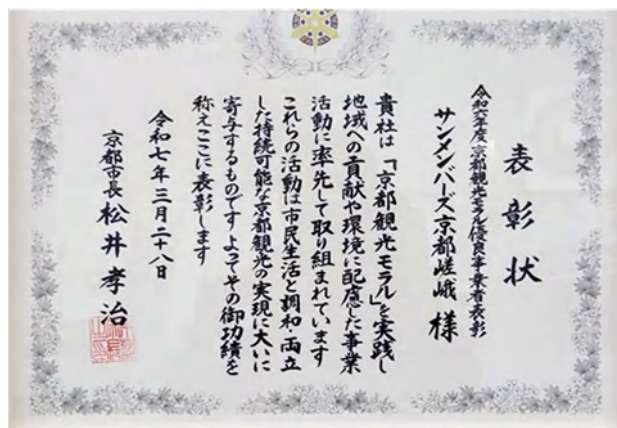 表彰状
令和六年度京都観光モラル優良事業者表彰
サンメンバーズ京都嵯峨 様
貴社は「京都観光モラル」を実践し
地域への貢献や環境に配慮した事業
活動に率先して取り組まれています
これらの活動は市民生活と調和 両立
した持続可能な京都観光の実現に大いに
寄与するものです よってその御功績を
称えここに表彰します
令和七年三月二十八日
京都市長 松井孝治